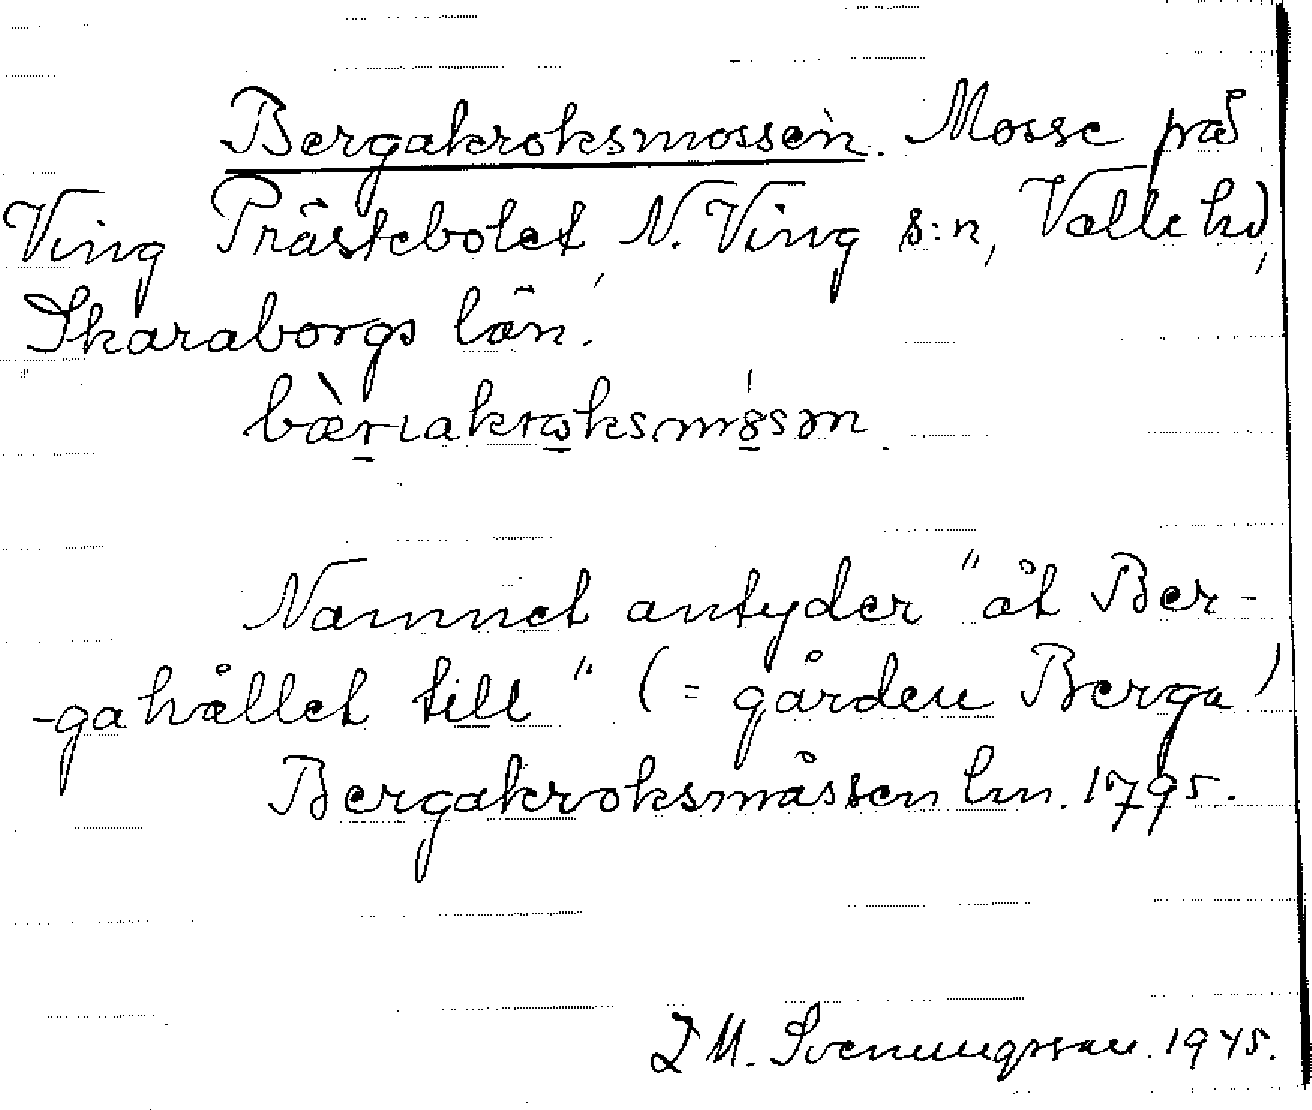 Bergakroksmossen. Mosse på
Ving Prästebolet, N. Ving s:n, Valle hd,
Skaraborgs län.
bæ̀rıakrɷksmósən
Namnet antyder "åt Ber-
-gahållet till" (= gården Berga)
Bergakroksmåssen lm. 1795.
I M. Svenungsson. 1945.